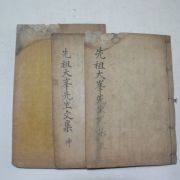 先祖大峯先生文集 坤
先祖大峯先生